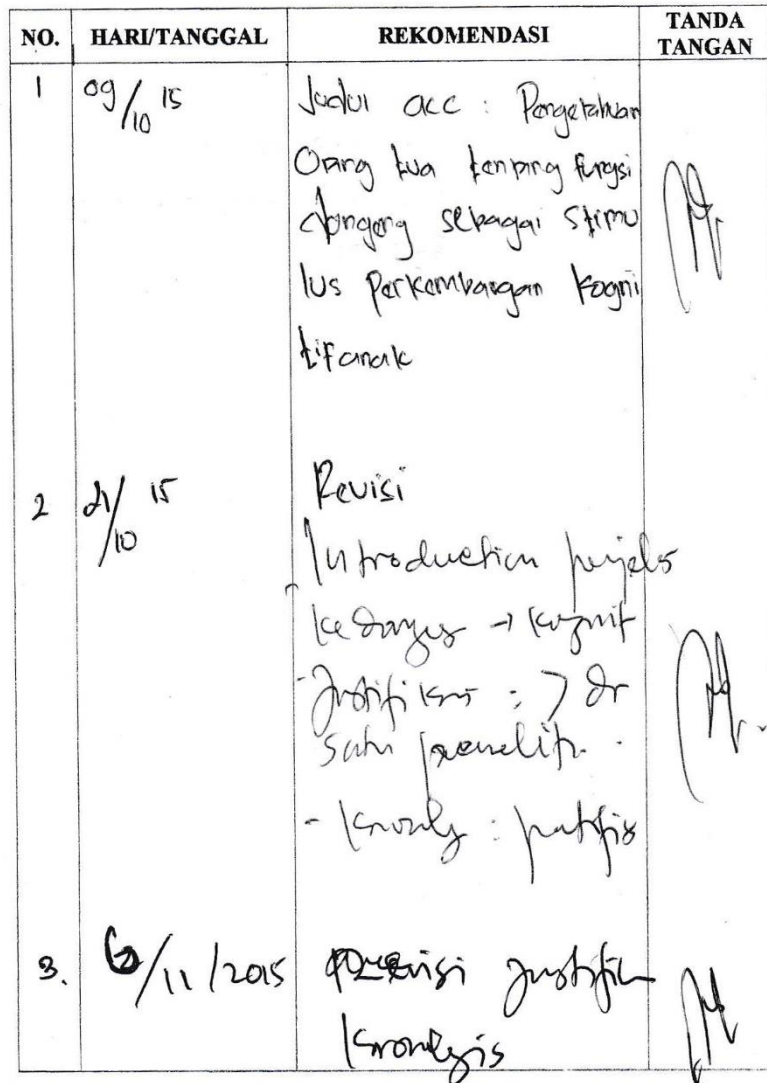 NO. HARI/TANGGAL REKOMENDASI TANDA TANGAN
1 09/10 15 Judul acc : Pengetahuan
Orang tua tentang fungsi
dongeng sebagai stimu
lus Perkembangan kogni
tif anak
2 21/10 15 Revisi
Introduction
→ kognit
- Justifikasi : > dr
satu penelit
- Kronolg :
3. 6/11/2015 Revisi Justifik
Kronologis